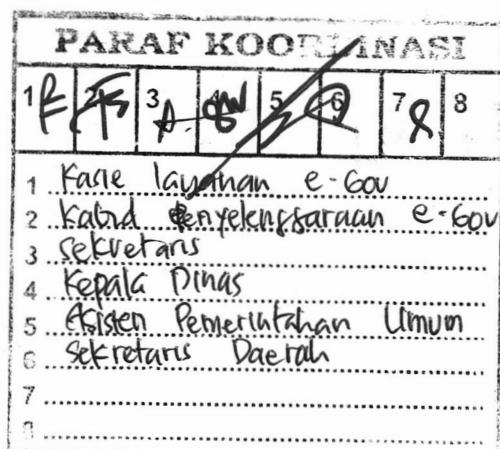 PARAF KOORDINASI
1 2 3 4 5 6 7 8
1 Kasie layanan e-Gov
2 Kabid Penyelenggaraan e-Gov
3 Sekretaris
4 Kepala Dinas
5 Asisten Pemerintahan Umum
6 Sekretaris Daerah
7
8